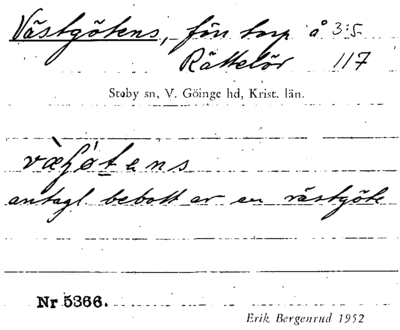 Västgötens, förr torp å 3:5
Rättelöv 117
Stoby sn, V. Göinge hd, Krist. län.
antagl. bebott av en västgöte
Nr 5366.
Erik Bergenrud 1952